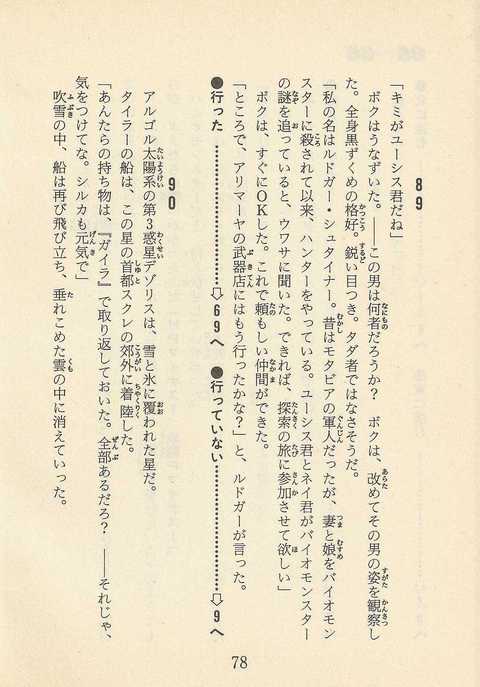 89
「キミがユーシス君だね」
ボクはうなずいた。――この男は何者だろうか?　ボクは、改めてその男の姿を観察し
た。全身黒ずくめの格好。鋭い目つき。タダ者ではなさそうだ。
「私の名はルドガー・シュタイナー。昔はモタビアの軍人だったが、妻と娘をバイオモン
スターに殺されて以来、ハンターをやっている。ユーシス君とネイ君がバイオモンスター
の謎を追っていると、ウワサに聞いた。できれば、探索の旅に参加させて欲しい」
ボクは、すぐにOKした。これで頼もしい仲間ができた。
「ところで、アリマーヤの武器店にはもう行ったかな?」と、ルドガーが言った。
●行った ………………⇨69へ　●行っていない ………………⇨9へ
90
アルゴル太陽系の第3惑星デゾリスは、雪と氷に覆われた星だ。
タイラーの船は、この星の首都スクレの郊外に着陸した。
「あんたらの持ち物は、『ガイラ』で取り返しておいた。全部あるだろ?　――それじゃ、
気をつけてな。シルカも元気で」
吹雪の中、船は再び飛び立ち、垂れこめた雲の中に消えていった。
78